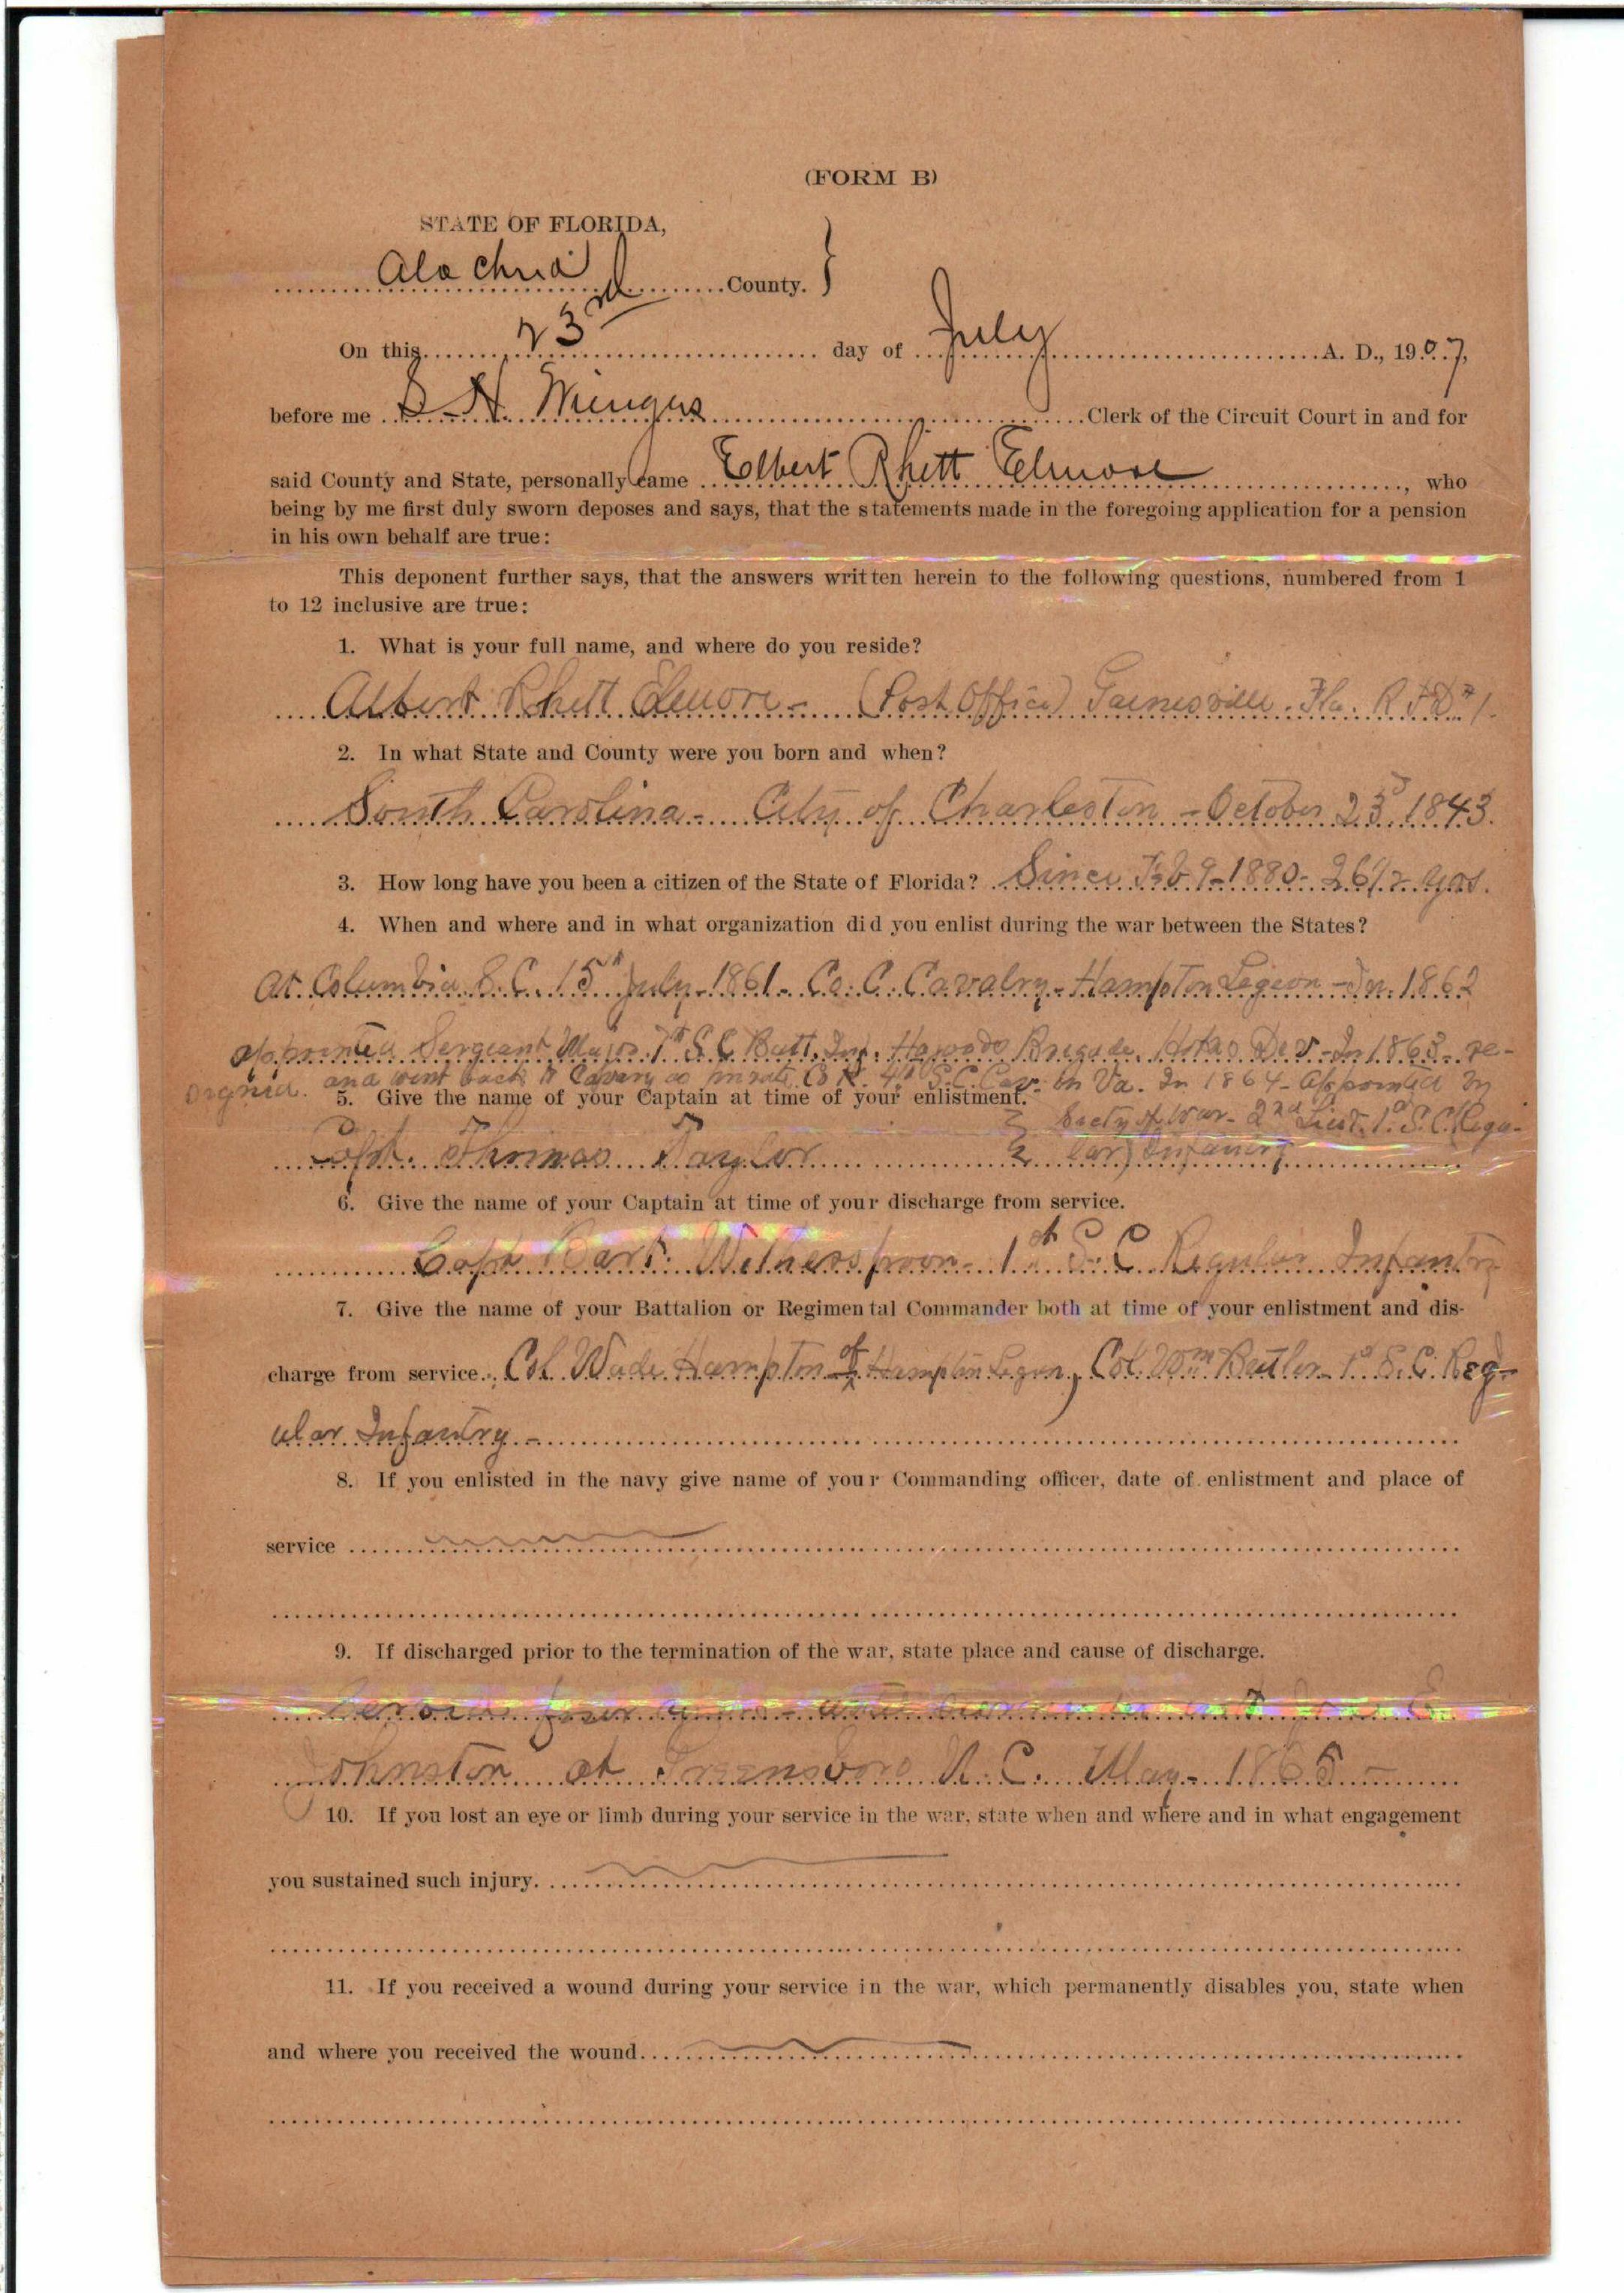 (FORM B)
STATE OF FLORIDA,
Alachua County.
On this 23rd day of July A. D., 1907,
before me S. H. Wienges Clerk of the Circuit Court in and for
said County and State, personally came Elbert Rhett Elmore, who
being by me first duly sworn deposes and says, that the statements made in the foregoing application for a pension
in his own behalf are true:
This deponent further says, that the answers written herein to the following questions, numbered from 1
to 12 inclusive are true:
1. What is your full name, and where do you reside?
Albert Rhett Elmore - (Post Office) Gainesville. Fla. R.F.D. #1.
2. In what State and County were you born and when?
South Carolina - City of Charleston - October 23d 1843.
3. How long have you been a citizen of the State of Florida? Since Feb 9 - 1880 - 26 1/2 yrs.
4. When and where and in what organization did you enlist during the war between the States?
At Columbia S.C. 15th July - 1861 - Co. C. Cavalry - Hampton Legion - In 1862
appointed Sergeant Major 7th S C Batt. Inf. Brigade, Div - In 1863 - re-
signed. and went back to Cavalry as private Co K. 4th S.C. Cav. in Va. In 1864 - Appointed by
5. Give the name of your Captain at time of your enlistment.
Secty of War - 2nd Lieut. 1st S.C. (Regu-
Capt. Thomas Taylor lar) Infantry
6. Give the name of your Captain at time of your discharge from service.
Capt Witherspoon - 1st S. C Regular Infantry
7. Give the name of your Battalion or Regimental Commander both at time of your enlistment and dis-
charge from service. Col. Wade Hampton of Hampton Legion, Col. Wm Butler 1st S.C. Reg-
ular Infantry -
8. If you enlisted in the navy give name of your Commanding officer, date of enlistment and place of
service
9. If discharged prior to the termination of the war, state place and cause of discharge.
Served four
Johnston at Greensboro N.C. May - 1865 -
10. If you lost an eye or limb during your service in the war, state when and where and in what engagement
you sustained such injury.
11. If you received a wound during your service in the war, which permanently disables you, state when
and where you received the wound